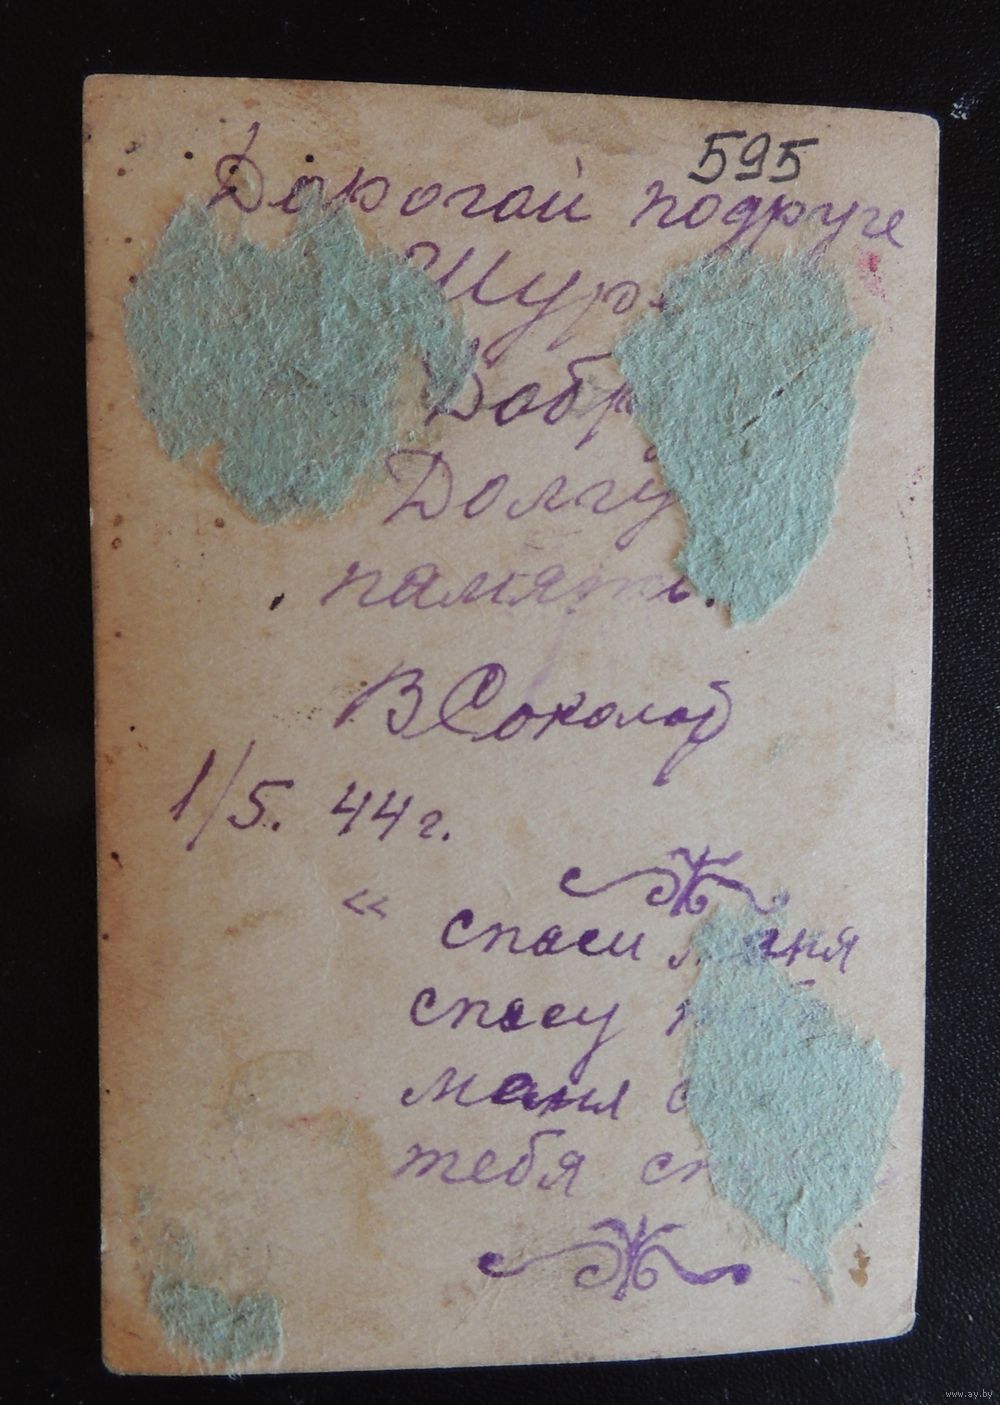 595
Дорогой подруге
Шур
Добр
Долгу
память.
В Соколов
1/5. 44 г.
«
спаси меня
спасу
маня
тебя сп
www.ay.by